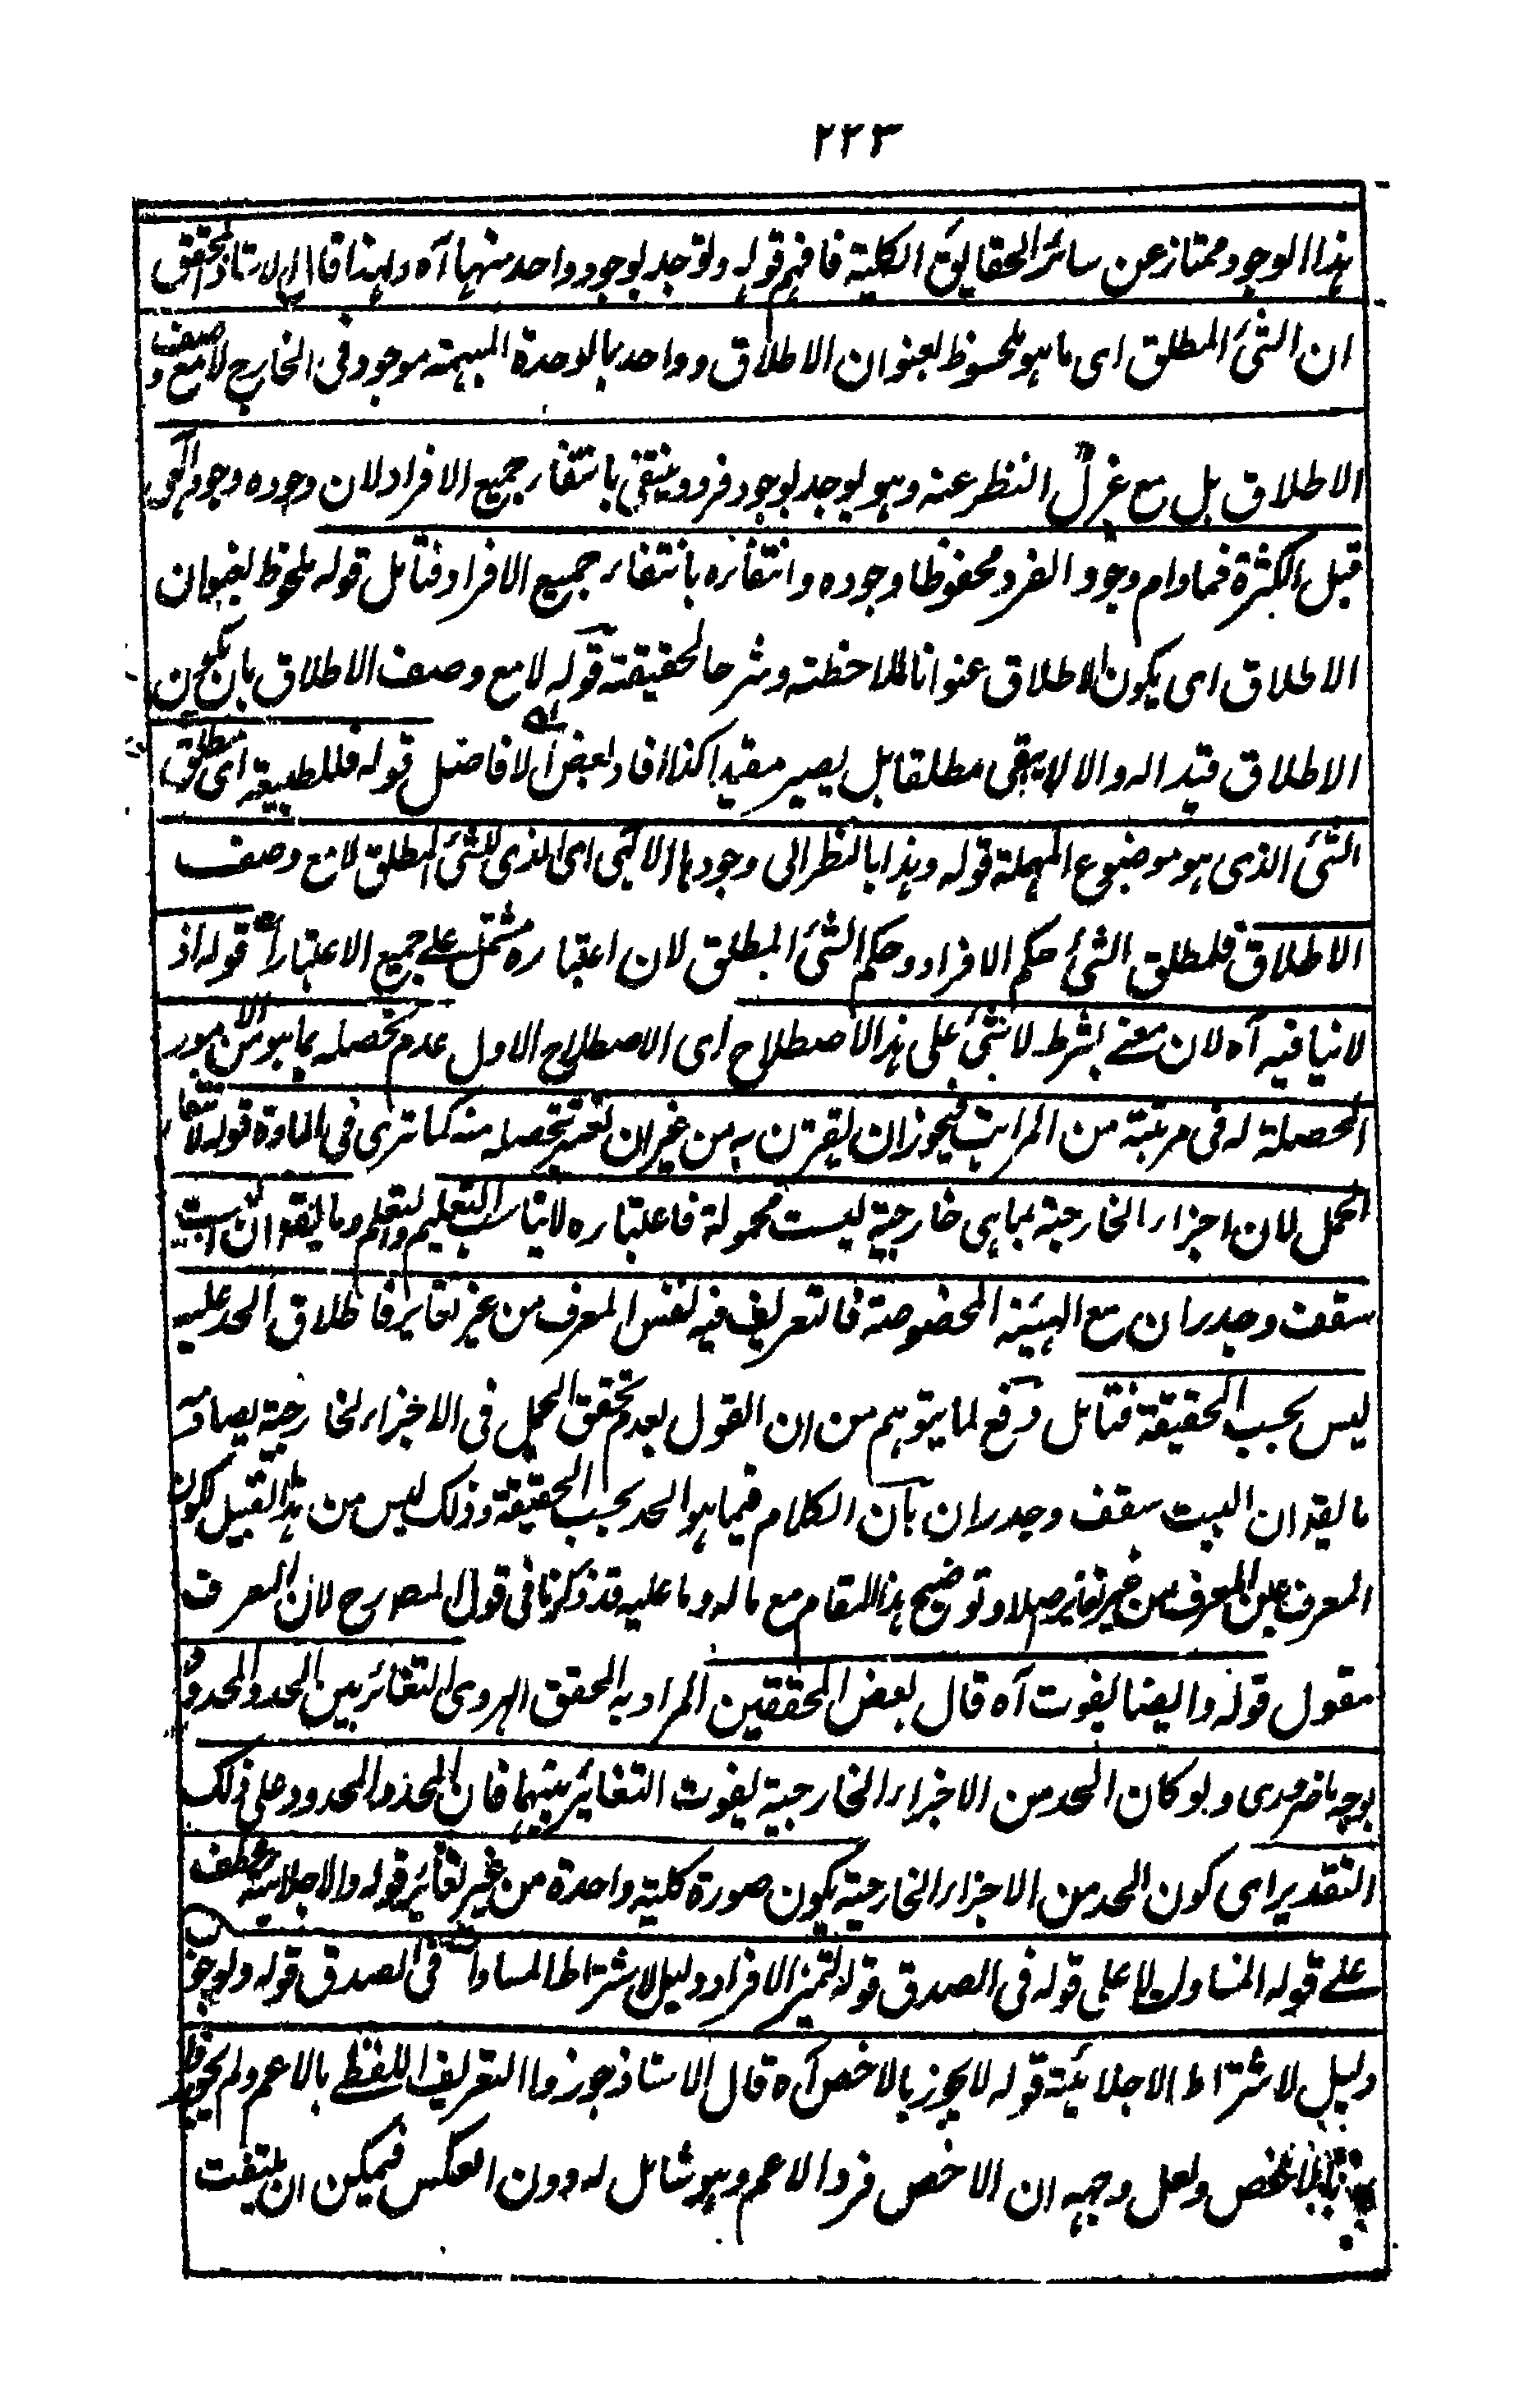 ٢٢٣
هذا الوجود ممتاز عن سائر الحقايق الكلية فافهم قوله ولو توجد بوجود واحد منها آه ولهذا قال الاستاذ المحقق
ان الشئ المطلق اى ما هو ملحوظ بعنوان الاطلاق وواحد بالوحدة المبهمة موجود فى الخارج لا مع وصف
الاطلاق بل مع عزل النظر عنه وهو يوجد بوجود فرد وينتفى بانتفاء جميع الافراد لان وجوده وجود الٰهى
قبل الكثرة فما دام وجود الفرد محفوظا وجوده وانتفائه بانتفاء جميع الافراد فتأمل قوله ملحوظ بعنوان
الاطلاق اى يكون الاطلاق عنوانا لملاحظته وشرحا لحقيقته قوله لا مع وصف الاطلاق بان يكون
الاطلاق قيدا له والا لا يبقى مطلقا بل يصير مقيدا كذا افاد بعض الافاضل قوله فللطبيعة اى مطلق
الشئ الذى هو موضوع المهملة قوله وهذا بالنظر الى وجودها الالٰهى اى الذى للشئ المطلق لا مع وصف
الاطلاق فلمطلق الشئ حكم الافراد وحكم الشئ المطلق لان اعتباره مشتمل على جميع الاعتبارات قوله اذ
لا ينافيه آه لان معنے بشرط لا شئ على هذا الاصطلاح اى الاصطلاح الاول عدم تحصله بما هو من الامور
المحصلة له فى مرتبة من المراتب فيجوز ان يقترن به من غير ان يعتبر تحصله منه كما ترى فى المادة قوله لانتفاء
الحمل لان اجزاء الخارجية بما هى خارجية ليست محمولة فاعتباره لا يناسب التعليم والتعلم وما يقع ان البيت
سقف وجدران مع الهيئة المخصوصة فالتعريف فيه لنفس المعرف من غير تغاير فاطلاق الحد عليه
ليس بحسب الحقيقة فتأمل دفع لما يتوهم من ان القول بعدم تحقق الحمل فى الاجزاء الخارجية يصادمه
ما يقع ان البيت سقف وجدران بان الكلام فيما هو الحد بحسب الحقيقة وذلك ليس من هذا القبيل لكون
المعرف عين المعرف من غير تغاير اصلا وتوضيح هذا المقام مع ما له وما عليه قد ذكرنا فى قول المصرح لان المعرف
مقول قوله وايضا يفوت آه قال بعض المحققين المراد به المحقق الهروى التغائر بين الحد والمحدود
بوجه ما ضرورى ولو كان الحد من الاجزاء الخارجية يفوت التغائر بينهما فان الحد والمحدود على ذلك
التقدير اى كون الحد من الاجزاء الخارجية يكون صورة كلية واحدة من غير تغائر قوله والاجلائية عطف
على قوله المساواة لا على قوله فى الصدق قوله لتميز الافراد دليل لاشتراط المساواة فى الصدق قوله ولو جوز
دليل لاشتراط الاجلائية قوله لا يجوز بالاخص آه قال الاستاذ جوزوا التعريف اللفظے بالاعم ولم يجوزوا
بالاخص ولعل وجهه ان الاخص فرد الاعم وهو شامل له دون العكس فيمكن ان يلتفت